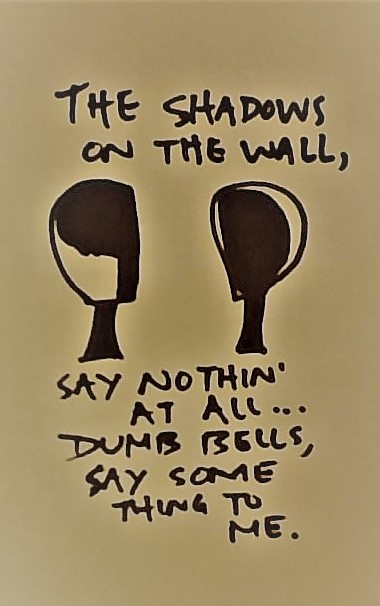 THE SHADOWS
ON THE WALL,
SAY NOTHIN'
AT ALL...
DUMB BELLS,
SAY SOME
THING TO
ME.